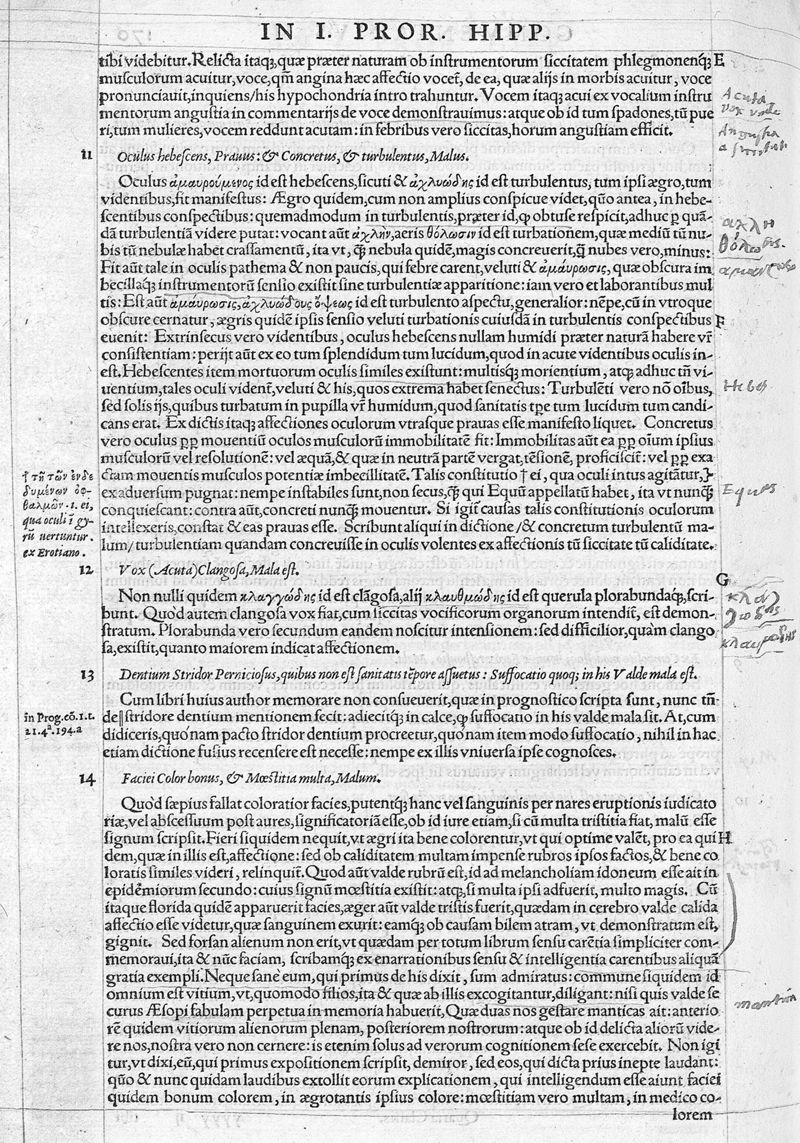 IN I. PROR. HIPP.
tibi videbitur. Relicta itaq;, quæ præter naturam ob instrumentorum siccitatem phlegmonenq; E
musculorum acuitur, voce, qm̃ angina hæc affectio vocet̃, de ea, quæ alijs in morbis acuitur, voce
pronunciauit, inquiens/his hypochondria intro trahuntur. Vocem itaq; acui ex vocalium instru
mentorum angustia in commentarijs de voce demonstrauimus: atque ob id tum spadones, tũ pue
ri, tum mulieres, vocem reddunt acutam: in febribus vero siccitas, horum angustiam efficit.
11 Oculus hebescens, Prauus: & Concretus, & turbulentus, Malus.
Oculus ἀμαυρούμενος id est hebescens, sicuti & ἀχλυώδης id est turbulentus, tum ipsi ægro, tum
videntibus, fit manifestus: Ægro quidem, cum non amplius conspicue videt, quo antea, in hebe-
scentibus conspectibus: quemadmodum in turbulentis, præter id, ꝙ obtuse respicit, adhuc ꝑ quã-
dã turbulentiã videre putat: vocant aũt ἀχλὴν, aeris θόλωσιν id est turbationem, quæ mediũ tũ nu-
bis tũ nebulæ habet crassamentũ, ita vt, ꝙ̃ nebula quidẽ, magis concreuerit, ꝙ̃ nubes vero, minus:
Fit aũt tale in oculis pathema & non paucis, qui febre carent, veluti & ἀμαύρωσις, quæ obscura im
becillaq; instrumentorũ sensio existit sine turbulentiæ apparitione: iam vero et laborantibus mul
tis: Est aũt ἀμαύρωσις, ἀχλυώδους ὄψεως id est turbulento aspectu, generalior: nẽpe, cũ in vtroque
obscure cernatur, ægris quidẽ ipsis sensio veluti turbationis cuiusdã in turbulentis conspectibus F
euenit: Extrinsecus vero videntibus, oculus hebescens nullam humidi præter naturã habere vr̃
consistentiam: perijt aũt ex eo tum splendidum tum lucidum, quod in acute videntibus oculis in-
est. Hebescentes item mortuorum oculis similes existunt: multisq; morientium, atq; adhuc tñ vi-
uentium, tales oculi vident̃, veluti & his, quos extrema habet senectus: Turbulẽti vero nõ oĩbus,
sed solis ijs, quibus turbatum in pupilla vr̃ humidum, quod sanitatis tp̃e tum lucidum tum candi-
cans erat. Ex dictis itaq; affectiones oculorum vtrasque prauas esse manifesto liquet. Concretus
vero oculus ꝓꝑ mouentiũ oculos musculorũ immobilitatẽ fit: Immobilitas aũt ea ꝓꝑ oĩum ipsius
musculorũ vel resolutionẽ: vel æquã, & quæ in neutrã partẽ vergat, tẽsionẽ, proficiscit̃: vel ꝓꝑ exa
ctam mouentis musculos potentiæ imbecillitatẽ. Talis constitutio † ei, qua oculi intus agitãtur,
ex aduersum pugnat: nempe instabiles sunt, non secus, ꝙ̃ qui Equũ appellatũ habet, ita vt nunꝙ̃
conquiescant: contra aũt, concreti nunꝙ̃ mouentur. Si igit̃ causas talis constitutionis oculorum
intellexeris, constat & eas prauas esse. Scribunt aliqui in dictione /& concretum turbulentũ ma-
lum/ turbulentiam quandam concreuisse in oculis volentes ex affectionis tũ siccitate tũ caliditate.
† τῇ τῶν ἐνδε
δυμένων ὀφ-
θαλμῶν .i. ei,
qua oculi ĩ gy-
rũ uertuntur.
ex Erotiano.
12 Vox (Acuta) Clangosa, Mala est.
G
Non nulli quidem κλαγγώδης id est clãgosa, alij κλαυθμώδης id est querula plorabundaq;, scri-
bunt. Quod autem clangosa vox fiat, cum siccitas vocificorum organorum intendit̃, est demon-
stratum. Plorabunda vero secundum eandem noscitur intensionem: sed difficilior, quàm clango
sa, existit, quanto maiorem indicat affectionem.
13 Dentium Stridor Perniciosus, quibus non est sanitatis tẽpore assuetus: Suffocatio quoq; in his Valde mala est.
Cum libri huius author memorare non consueuerit, quæ in prognostico scripta sunt, nunc tñ-
de stridore dentium mentionem fecit: adiecitq; in calce, ꝙ suffocatio in his valde mala sit. At, cum
didiceris, quo nam pacto stridor dentium procreetur, quo nam item modo suffocatio, nihil in hac
etiam dictione fusius recensere est necesse: nempe ex illis vniuersa ipse cognosces.
in Prog. cõ. 1. t.
21. 4ᵃ. 194. a
14 Faciei Color bonus, & Mœstitia multa, Malum.
Quod sæpius fallat coloratior facies, putentq; hanc vel sanguinis per nares eruptionis iudicato
riæ, vel abscessuum post aures, significatoriã esse, ob id iure etiam, si cũ multa tristitia fiat, malũ esse
signum scripsit. Fieri siquidem nequit, vt ægri ita bene colorentur, vt qui optime valẽt, pro ea qui H
dem, quæ in illis est, affectione: sed ob caliditatem multam impense rubros ipsos factos, & bene co
loratis similes videri, relinquit̃. Quod aũt valde rubrũ est, id ad melancholiam idoneum esse ait in
epidẽmiorum secundo: cuius signũ mœstitia existit: atq;, si multa ipsi adfuerit, multo magis. Cũ
itaque florida quidẽ apparuerit facies, æger aũt valde tristis fuerit, quædam in cerebro valde calida
affectio esse videtur, quæ sanguinem exurit: eamq; ob causam bilem atram, vt demonstratum est,
gignit. Sed forsan alienum non erit, vt quædam per totum librum sensu carẽtia simpliciter com-
memoraui, ita & nũc faciam, scribamq; ex enarrationibus sensu & intelligentia carentibus aliquã
gratia exempli. Neque sane eum, qui primus de his dixit, sum admiratus: commune siquidem id
omnium est vitium, vt, quomodo filios, ita & quæ ab illis excogitantur, diligant: nisi quis valde se
curus Æsopi fabulam perpetua in memoria habuerit, Quæ duas nos gestare manticas ait: anterio
rẽ quidem vitiorum alienorum plenam, posteriorem nostrorum: atque ob id delicta aliorũ vide-
re nos, nostra vero non cernere: is etenim solus ad verorum cognitionem sese exercebit. Non igi
tur, vt dixi, eũ, qui primus expositionem scripsit, demiror, sed eos, qui dicta prius inepte laudant:
quo & nunc quidam laudibus extollit eorum explicationem, qui intelligendum esse aiunt faciei
quidem bonum colorem, in ægrotantis ipsius colore: mœstitiam vero multam, in medico co-
lorem
Acuta
vox
Angusta
θόλωσις.
Hebes
Equus